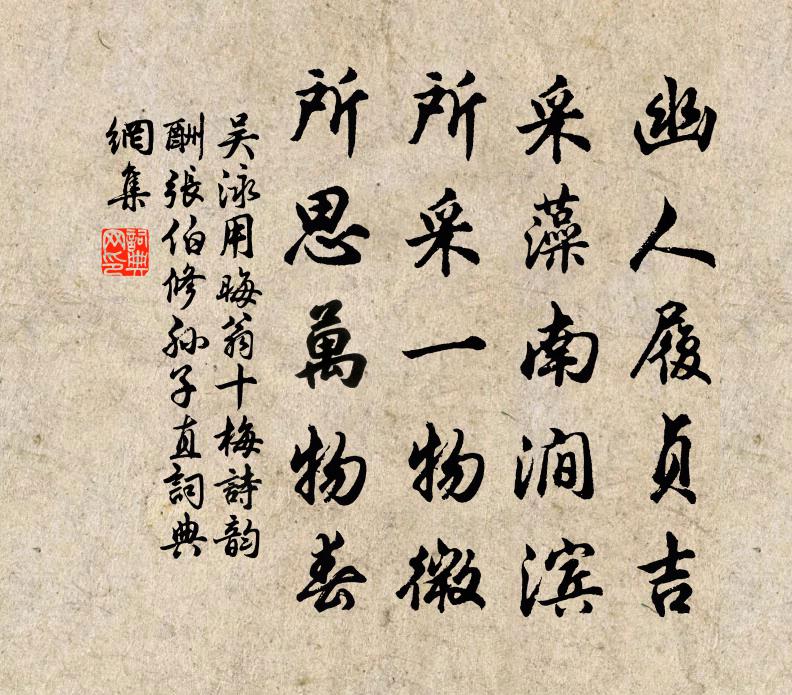 幽人履贞吉
采藻南涧滨
所采一物微
所思萬物春
吴泳用晦翁十梅詩韵
酬張伯修孙子直詞典
網集
詞典
网印